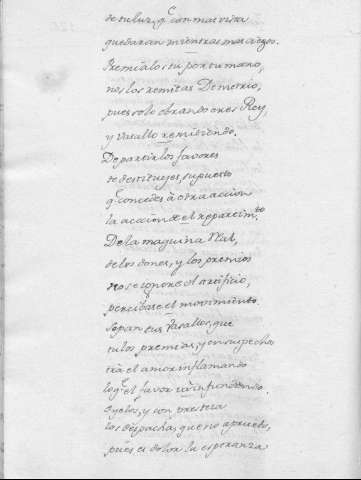 de tu luz, q^e con mas vista
quedaran mientras mas ciegos.
Premialos tu por tu mano,
no los remitas
pues solo obrando eres Rey,
y Vasallo remitiendo.
De partir los favores
te destituyes, supuesto
q^e concedes à otra accion
la accion de el repartim^to
De la maquina Real,
de los dones, y los premios
no se ignore el artificio,
percibase el movimiento.
Sepan tus Vasallos, que
tu los premias, y en su pecho
el amor inflamando
lo q^e el favor infundiendo.
Oyelos, y con presteza
los despacha, que no apruebo,
pues es dolor la esperanza